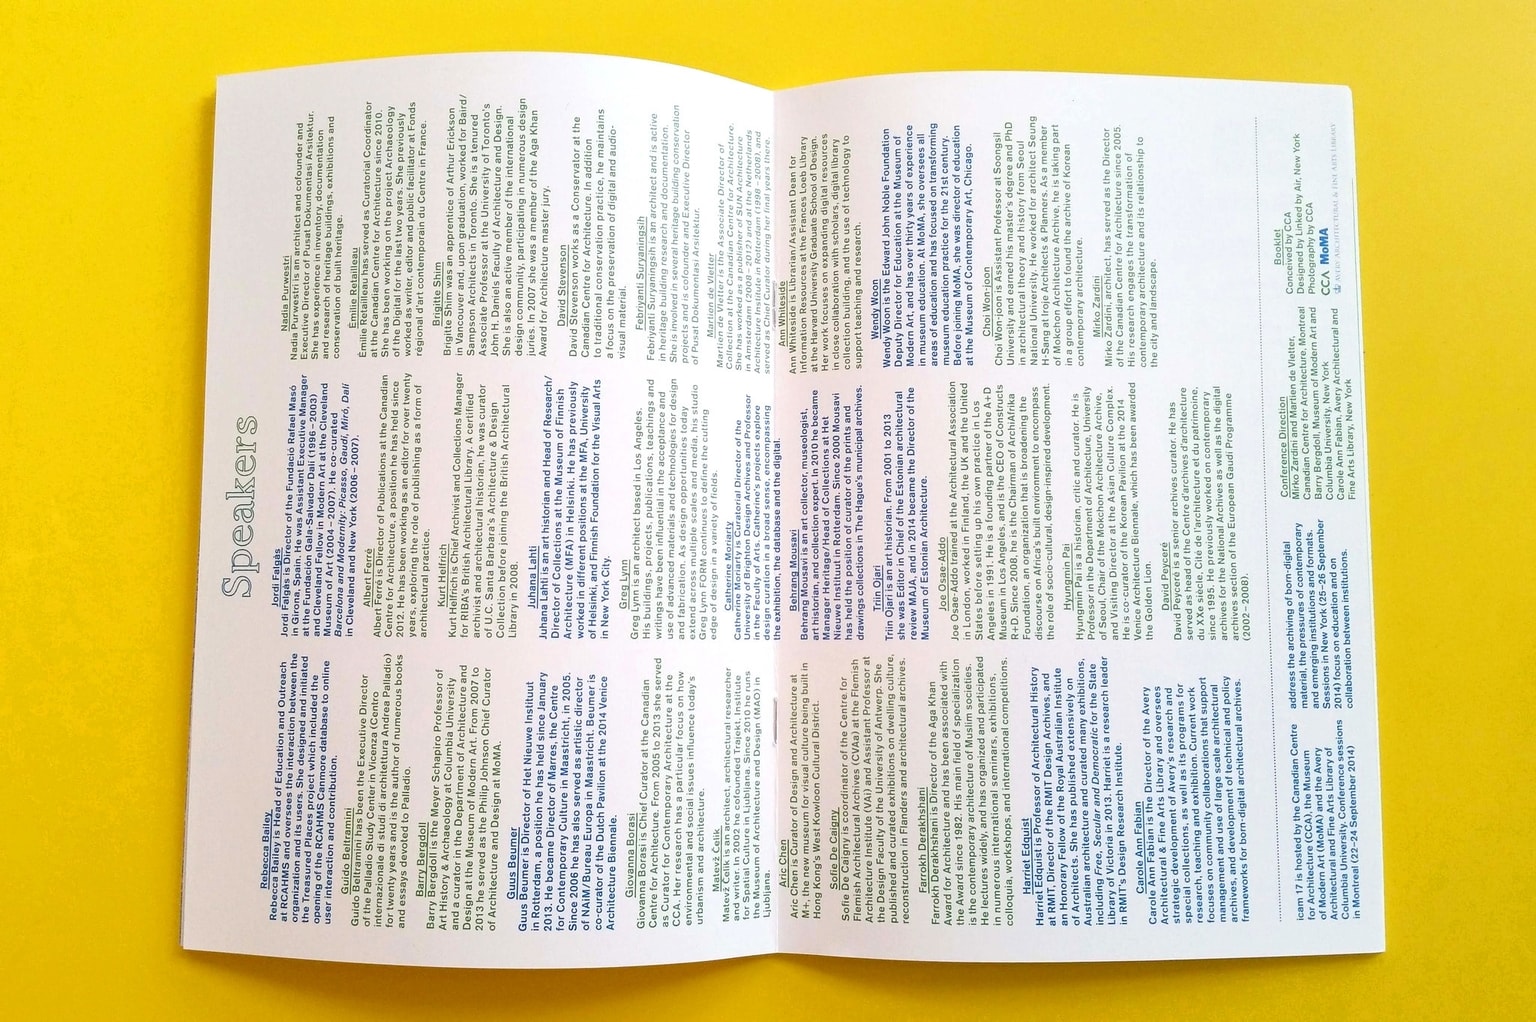 Speakers
Rebecca Bailey
Rebecca Bailey is Head of Education and Outreach
at RCAHMS and oversees the interaction between the
organization and its users. She designed and initiated
the Treasured Places project which included the
opening of the RCAHMS Canmore database to online
user interaction and contribution.
Guido Beltramini
Guido Beltramini has been the Executive Director
of the Palladio Study Center in Vicenza (Centro
internazionale di studi di architettura Andrea Palladio)
for twenty years and is the author of numerous books
and essays devoted to Palladio.
Barry Bergdoll
Barry Bergdoll is the Meyer Schapiro Professor of
Art History & Archaeology at Columbia University
and a curator in the Department of Architecture and
Design at the Museum of Modern Art. From 2007 to
2013 he served as the Philip Johnson Chief Curator
of Architecture and Design at MoMA.
Guus Beumer
Guus Beumer is Director of Het Nieuwe Instituut
in Rotterdam, a position he has held since January
2013. He became Director of Marres, the Centre
for Contemporary Culture in Maastricht, in 2005.
Since 2006 he has also served as artistic director
of NAiM/Bureau Europa in Maastricht. Beumer is
co-curator of the Dutch Pavilion at the 2014 Venice
Architecture Biennale.
Giovanna Borasi
Giovanna Borasi is Chief Curator at the Canadian
Centre for Architecture. From 2005 to 2013 she served
as Curator for Contemporary Architecture at the
CCA. Her research has a particular focus on how
environmental and social issues influence today's
urbanism and architecture.
Matevž Čelik
Matevž Čelik is an architect, architectural researcher
and writer. In 2002 he cofounded Trajekt, Institute
for Spatial Culture in Ljubljana. Since 2010 he runs
the Museum of Architecture and Design (MAO) in
Ljubljana.
Jordi Falgàs
Jordi Falgàs is Director of the Fundació Rafael Masó
in Girona, Spain. He was Assistant Executive Manager
at the Fundación Gala-Salvador Dalí (1996–2003)
and Cleveland Fellow in Modern Art at the Cleveland
Museum of Art (2004–2007). He co-curated
Barcelona and Modernity: Picasso, Gaudí, Miró, Dalí
in Cleveland and New York (2006–2007).
Albert Ferré
Albert Ferré is Director of Publications at the Canadian
Centre for Architecture, a position he has held since
2012. He has been working as an editor for over twenty
years, exploring the role of publishing as a form of
architectural practice.
Kurt Helfrich
Kurt Helfrich is Chief Archivist and Collections Manager
for RIBA's British Architectural Library. A certified
archivist and architectural historian, he was curator
of U.C. Santa Barbara's Architecture & Design
Collection before joining the British Architectural
Library in 2008.
Juhana Lahti
Juhana Lahti is an art historian and Head of Research/
Director of Collections at the Museum of Finnish
Architecture (MFA) in Helsinki. He has previously
worked in different positions at the MFA, University
of Helsinki, and Finnish Foundation for the Visual Arts
in New York City.
Greg Lynn
Greg Lynn is an architect based in Los Angeles.
His buildings, projects, publications, teachings and
writings have been influential in the acceptance and
use of advanced materials and technologies for design
and fabrication. As design opportunities today
extend across multiple scales and media, his studio
Greg Lynn FORM continues to define the cutting
edge of design in a variety of fields.
Catherine Moriarty
Catherine Moriarty is Curatorial Director of the
University of Brighton Design Archives and Professor
in the Faculty of Arts. Catherine's projects explore
design curation in a broad sense, encompassing
the exhibition, the database and the digital.
Nadia Purwestri
Nadia Purwestri is an architect and cofounder and
Executive Director of Pusat Dokumentasi Arsitektur.
She has experience in inventory, documentation
and research of heritage buildings, exhibitions and
conservation of built heritage.
Émilie Retailleau
Émilie Retailleau has served as Curatorial Coordinator
at the Canadian Centre for Architecture since 2010.
She has been working on the project Archaeology
of the Digital for the last two years. She previously
worked as writer, editor and public facilitator at Fonds
régional d'art contemporain du Centre in France.
Brigitte Shim
Brigitte Shim was an apprentice of Arthur Erickson
in Vancouver and upon graduation, worked for Baird/
Sampson Architects in Toronto. She is a tenured
Associate Professor at the University of Toronto's
John H. Daniels Faculty of Architecture and Design.
She is also an active member of the international
design community, participating in numerous design
juries. In 2007 she was a member of the Aga Khan
Award for Architecture master jury.
David Stevenson
David Stevenson works as a Conservator at the
Canadian Centre for Architecture. In addition
to traditional conservation practice, he maintains
a focus on the preservation of digital and audio-
visual material.
Febriyanti Suryaningsih
Febriyanti Suryaningsih is an architect and is active
in heritage building research and documentation.
She is involved in several heritage building conservation
projects and is cofounder and Executive Director
of Pusat Dokumentasi Arsitektur.
Martien de Vletter
Martien de Vletter is the Associate Director of
Collection at the Canadian Centre for Architecture.
She has worked as a publisher of SUN Architecture
in Amsterdam (2008–2012) and at the Netherlands
Architecture Institute in Rotterdam (1998–2008), and
served as Chief Curator during her final years there.
Aric Chen
Aric Chen is Curator of Design and Architecture at
M+, the new museum for visual culture being built in
Hong Kong's West Kowloon Cultural District.
Sofie De Caigny
Sofie De Caigny is coordinator of the Centre for
Flemish Architectural Archives (CVAa) at the Flemish
Architecture Institute (VAi) and Assistant Professor at
the Design Faculty of the University of Antwerp. She
published and curated exhibitions on dwelling culture,
reconstruction in Flanders and architectural archives.
Farrokh Derakhshani
Farrokh Derakhshani is Director of the Aga Khan
Award for Architecture and has been associated with
the Award since 1982. His main field of specialization
is the contemporary architecture of Muslim societies.
He lectures widely, and has organized and participated
in numerous international seminars, exhibitions,
colloquia, workshops, and international competitions.
Harriet Edquist
Harriet Edquist is Professor of Architectural History
at RMIT, Director of the RMIT Design Archives, and
an Honorary Fellow of the Royal Australian Institute
of Architects. She has published extensively on
Australian architecture and has curated many exhibitions,
including Free, Secular and Democratic for the State
Library of Victoria in 2013. Harriet is a research leader
in RMIT's Design Research Institute.
Carole Ann Fabian
Carole Ann Fabian is Director of the Avery
Architectural & Fine Arts Library and oversees
strategic development of Avery's research and
special collections, as well as its programs for
research, teaching and exhibition. Current work
focuses on community collaborations that support
access to and management of large scale architectural
archives, and development of technical and policy
frameworks for born-digital architectural archives.
Behrang Mousavi
Behrang Mousavi is an art collector, museologist,
art historian, and collection expert. In 2010 he became
Manager Heritage/Head of Collections at Het
Nieuwe Instituut in Rotterdam. Since 2000 Mousavi
has held the position of curator of the prints and
drawings collections in The Hague's municipal archives.
Triin Ojari
Triin Ojari is an art historian. From 2001 to 2013
she was Editor in Chief of the Estonian architectural
review MAJA, and in 2014 became the Director of the
Museum of Estonian Architecture.
Joe Osae-Addo
Joe Osae-Addo trained at the Architectural Association
in London, worked in Finland, the UK and the United
States before setting up his own practice in Los
Angeles in 1991. He is a founding partner of the A+D
Museum in Los Angeles, and is the CEO of Constructs
R+D. Since 2008, he is the Chairman of ArchiAfrika
Foundation, an organization that is broadening the
discourse on Africa's built environment to encompass
the role of socio-cultural, design-inspired development.
Hyungmin Pai
Hyungmin Pai is a historian, critic and curator. He is
Professor in the Department of Architecture, University
of Seoul, Chair of the Mokchon Architecture Archive,
and Visiting Director at the Asian Culture Complex.
He is co-curator of the Korean Pavilion at the 2014
Venice Architecture Biennale, which has been awarded
the Golden Lion.
David Peyceré
David Peyceré is a senior archives curator. He has
served as head of the Centre d'archives d'architecture
du XXe siècle, Cité de l'architecture et du patrimoine,
since 1995. He previously worked on contemporary
archives at the National Archives as well as the digital
archives section of the European Gaudi Programme
(2002–2008).
Ann Whiteside
Ann Whiteside is Librarian/Assistant Dean for
Information Resources at the Frances Loeb Library
at the Harvard University Graduate School of Design.
Her work focuses on expanding digital resources
in close collaboration with scholars, digital library
collection building, and the use of technology to
support teaching and research.
Wendy Woon
Wendy Woon is the Edward John Noble Foundation
Deputy Director for Education at the Museum of
Modern Art, and has over thirty years of experience
in museum education. At MoMA, she oversees all
areas of education and has focused on transforming
museum education practice for the 21st century.
Before joining MoMA, she was director of education
at the Museum of Contemporary Art, Chicago.
Choi Won-joon
Choi Won-joon is Assistant Professor at Soongsil
University and earned his master's degree and PhD
in architectural theory and history from Seoul
National University. He worked for architect Seung
H-Sang at Iroje Architects & Planners. As a member
of Mokchon Architecture Archive, he is taking part
in a group effort to found the archive of Korean
contemporary architecture.
Mirko Zardini
Mirko Zardini, architect, has served as the Director
of the Canadian Centre for Architecture since 2005.
His research engages the transformation of
contemporary architecture and its relationship to
the city and landscape.
icam 17 is hosted by the Canadian Centre
for Architecture (CCA), the Museum
of Modern Art (MoMA) and the Avery
Architectural and Fine Arts Library of
Columbia University. Conference sessions
in Montreal (22–24 September 2014)
address the archiving of born-digital
material, the pressures of contemporary
and emerging institutional formats.
Sessions in New York (25–26 September
2014) focus on education and on
collaboration between institutions.
Conference Direction
Mirko Zardini and Martien de Vletter,
Canadian Centre for Architecture, Montreal
Barry Bergdoll, Museum of Modern Art and
Columbia University, New York
Carole Ann Fabian, Avery Architectural and
Fine Arts Library, New York
Booklet
Conceived by CCA
Designed by Linked by Air, New York
Photography by CCA
CCA MoMA
AVERY ARCHITECTURAL & FINE ARTS LIBRARY